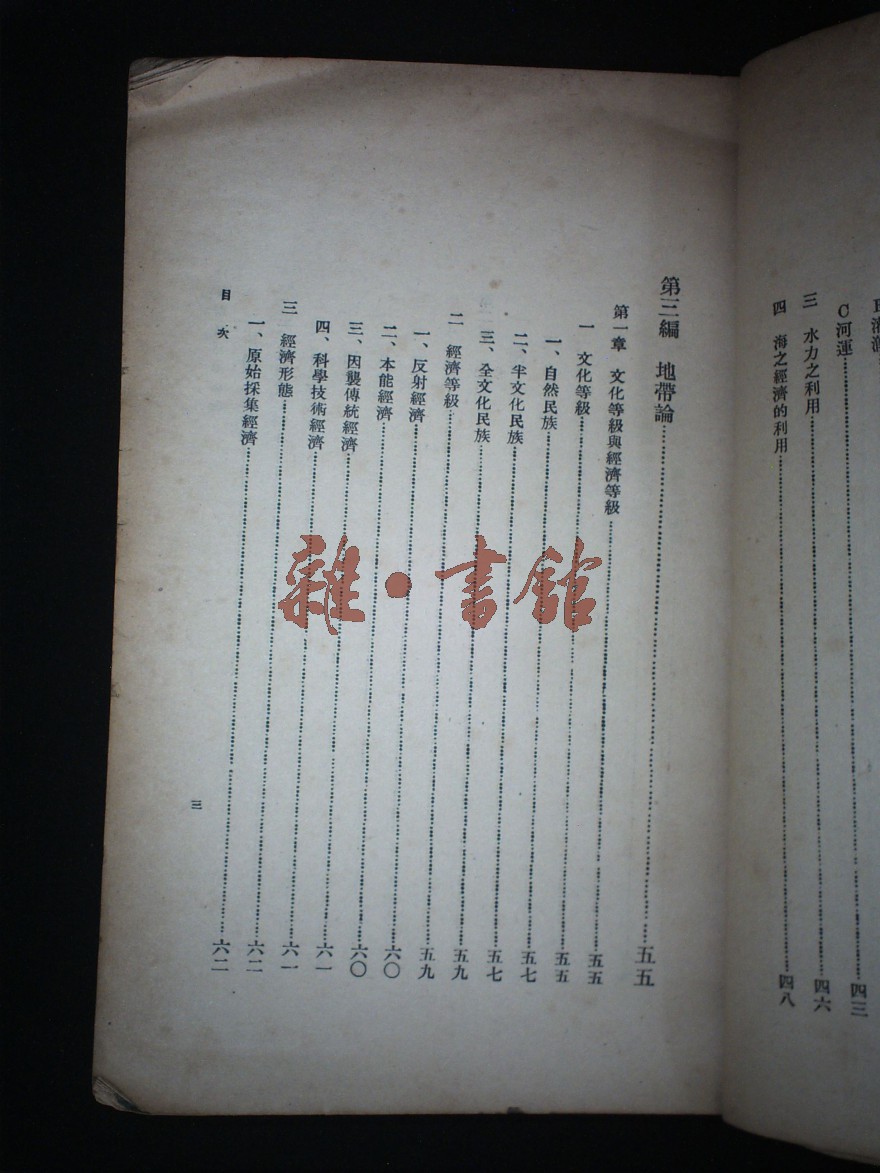 C河運…………四三
三 水力之利用…………四六
四 海之經濟的利用…………四八
第三編 地帶論…………五五
第一章 文化等級與經濟等級…………五五
一 文化等級…………五五
一、自然民族…………五七
二、半文化民族…………五七
三、全文化民族…………五九
二 經濟等級…………五九
一、反射經濟…………六〇
二、本能經濟…………六〇
三、因襲傳統經濟…………六一
四、科學技術經濟…………六一
三 經濟形態…………六二
一、原始採集經濟…………六二
目次
三
雜·書館